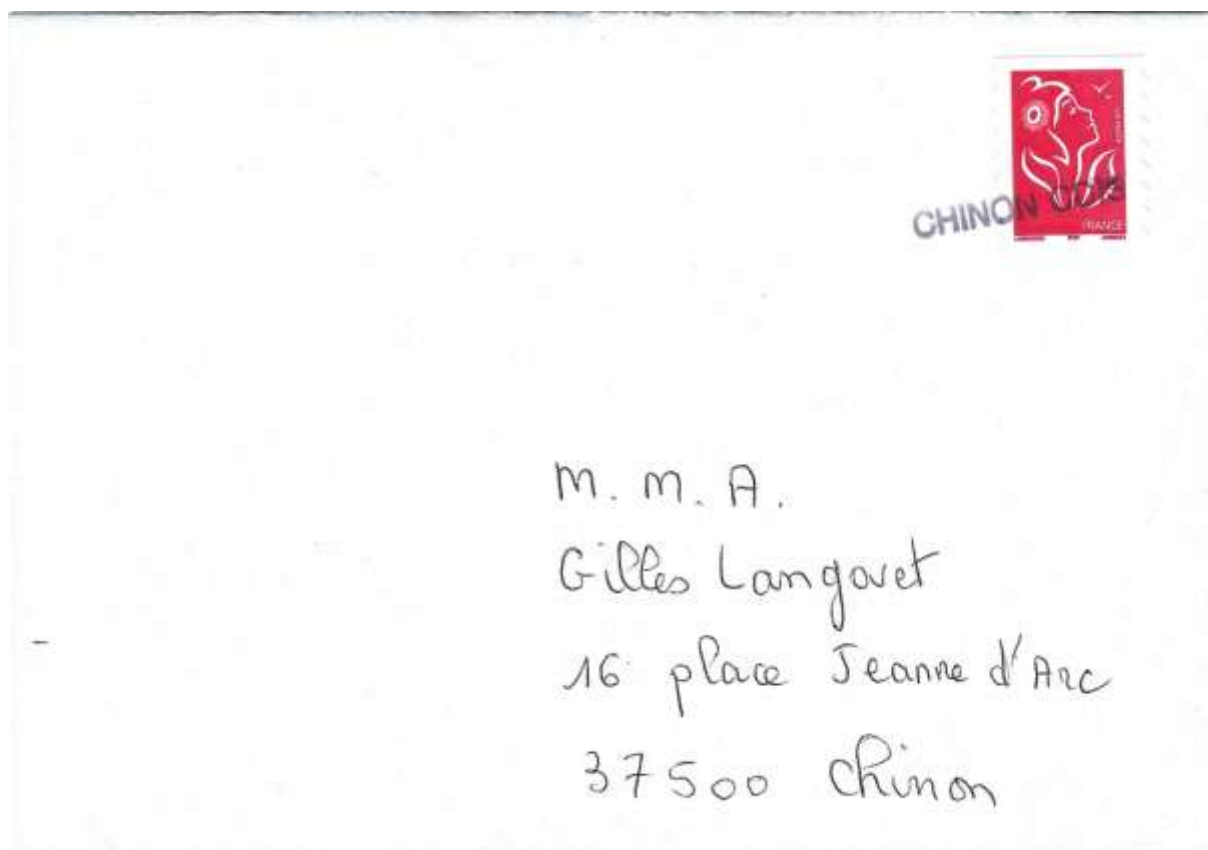 FRANCE
CHINON CDIS
M. M. A.
Gilles Langovet
16 place Jeanne d'Arc
37500 Chinon